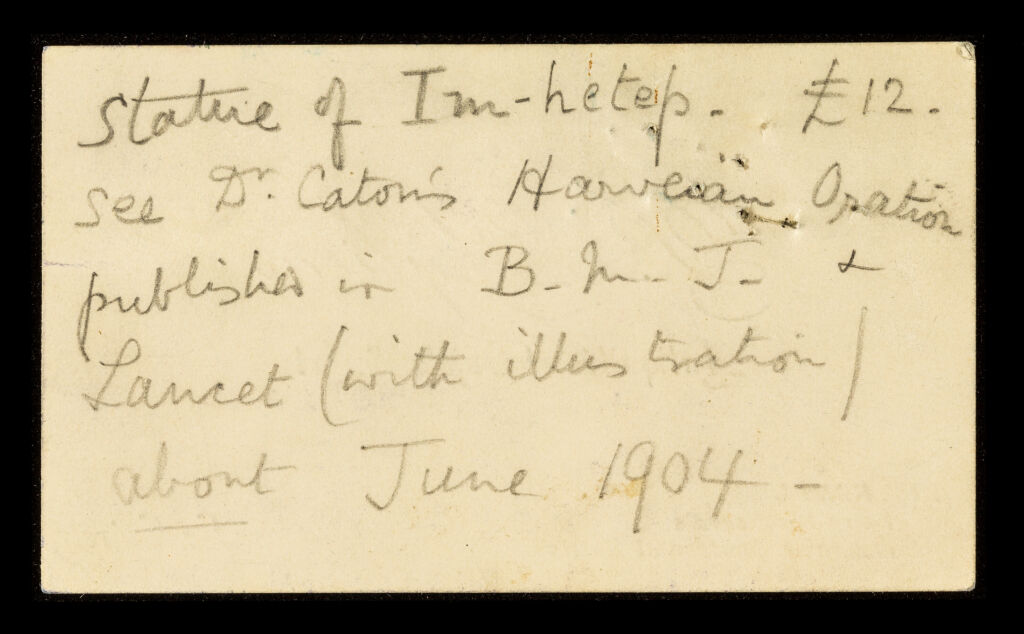 Statue of Im-hetep. £12.
see Dr. Caton's Harveian Oration
published in B. M. J. &
Lancet (with illustration)
about June 1904 -